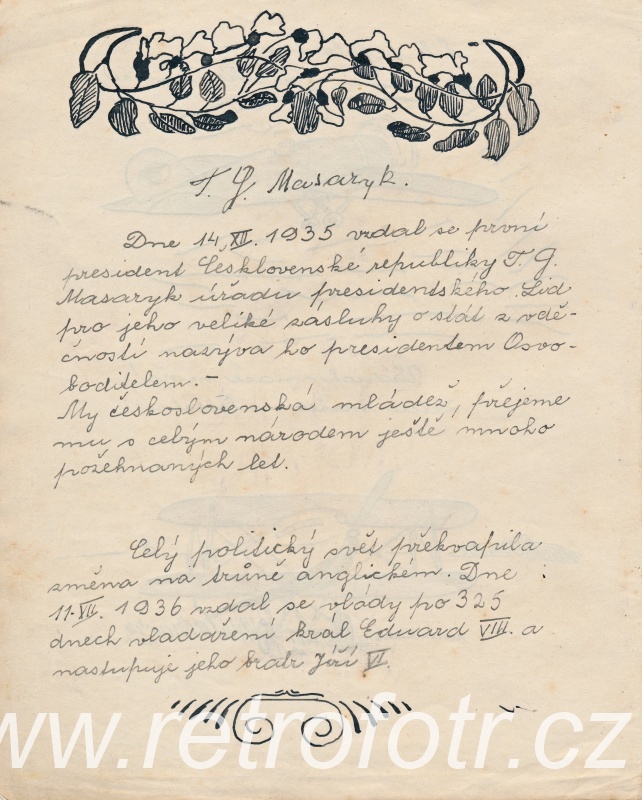 T. G. Masaryk.
Dne 14. XII. 1935 vzdal se první
president Českslovenské republiky T. G.
Masaryk úřadu presidentského. Lid
pro jeho veliké zásluhy o stát z vdě-
čností nasýva ho presidentem Osvo-
boditelem. -
My československá mládež, přejeme
mu s celým národem ještě mnoho
požehnaných let.
Celý politický svět překvapila
změna na trůně anglickém. Dne
11. XII. 1936 vzdal se vlády po 325
dnech vladaření král Eduard VIII. a
nastupuje jeho bratr Jiří VI.
www.retrofotr.cz